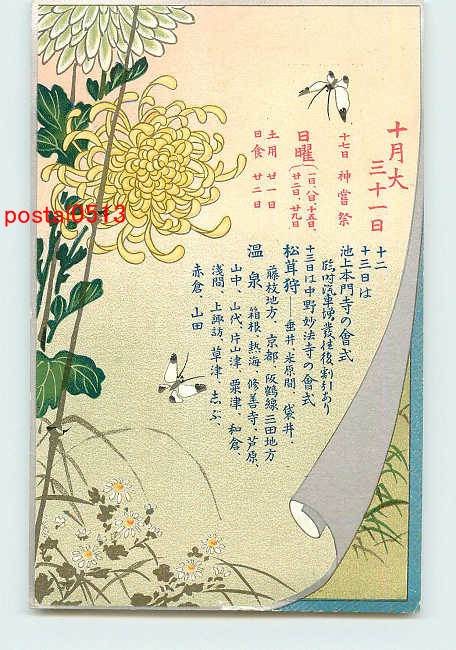 十月大
三十一日
十七日 神嘗祭
日曜(一日、八日、十五日、
廿二日、廿九日
土用 廿一日
日食 廿二日
十二
十三日は
池上本門寺の會式
臨時汽車増發往復割引あり
十三日は中野妙法寺の會式
松茸狩――垂井、米原間、袋井、
藤枝地方、京都、阪鶴線三田地方
温泉 箱根、熱海、修善寺、芦原、
山中、山代、片山津、粟津、和倉、
浅間、上諏訪、草津、志ぶ、
赤倉、山田
postal0513